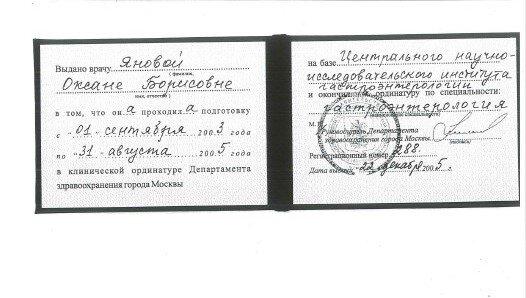 Выдано врачу Яновой
( фамилия,
Оксане Борисовне
имя, отчество )
в том, что он а проходил а подготовку
с „01“ сентября 2003 года
по „31“ августа 2005 года
в клинической ординатуре Департамента
здравоохранения города Москвы
на базе Центрального научно-
исследовательского института
гастроэнтерологии
и окончил ординатуру по специальности:
гастроэнтерология
М.П.
Руководитель Департамента
здравоохранения города Москвы
(подпись)
Регистрационный номер 288
Дата выдачи „22“ декабря 2005 г.